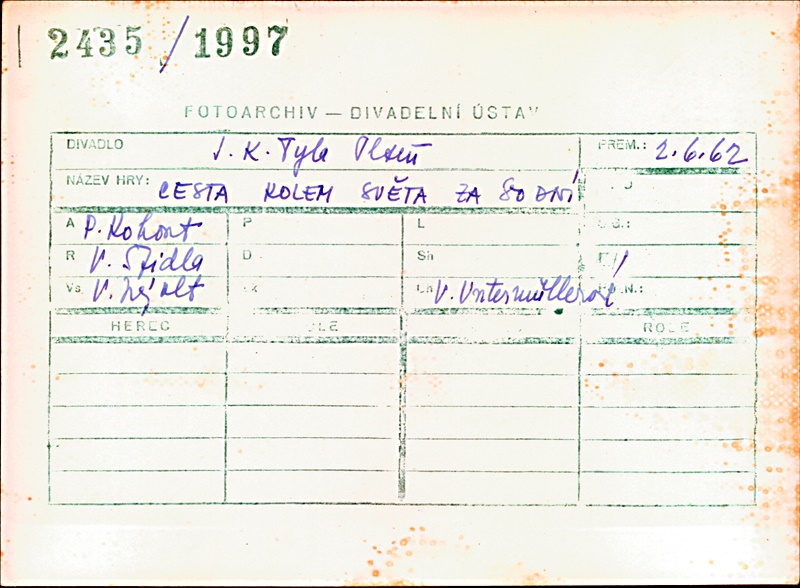 2435/1997
FOTOARCHIV — DIVADELNÍ ÚSTAV
DIVADLO J. K. Tyla Plzeň PREM.: 2.6.62
NÁZEV HRY: CESTA KOLEM SVĚTA ZA 80 DNÍ
A P. Kohout P L
R V. Špidla D Sh
Vs V. Nejolt V. Vntermüllerová
HEREC ROLE